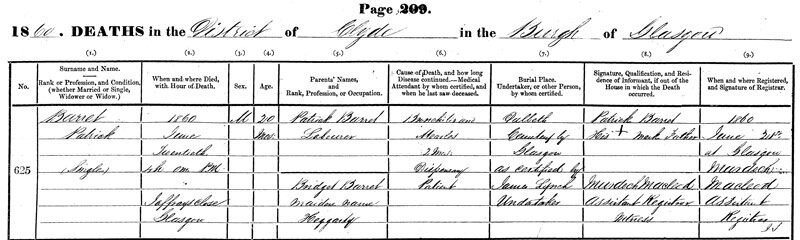 Page 209.
1860. DEATHS in the District of Clyde in the Burgh of Glasgow
(1.) (2.) (3.) (4.) (5.) (6.) (7.) (8.) (9.)
No.
Surname and Name.
Rank or Profession, and Condition,
(whether Married or Single,
Widower or Widow.)
When and where Died,
with Hour of Death.
Sex.
Age.
Parents' Names,
and
Rank, Profession, or Occupation.
Cause of Death, and how long
Disease continued.—Medical
Attendant by whom certified, and
when he last saw deceased.
Burial Place.
Undertaker, or other Person,
by whom certified.
Signature, Qualification, and Resi-
dence of Informant, if out of
the House in which the Death
occurred.
When and where Registered,
and Signature of Registrar.
625
Barret
Patrick
(Single)
1860
June
Twentieth
4h 0m PM
Jaffrays close
Glasgow
M
20
Mos.
Patrick Barret
Laborer
Bridget Barret
Maiden name
Heggarty
Bronchitis and
Measles
2 Mos.
Dispensary
Patient
Dalbeth
Cemetery by
Glasgow
as certified by
James Lynch
Undertaker
Patrick Barret
His + Mark Father
Murdoch Macleod
Assistant Registrar
Witness
1860
June
at Glasgow
Murdoch
Macleod
Assistant
Registrar